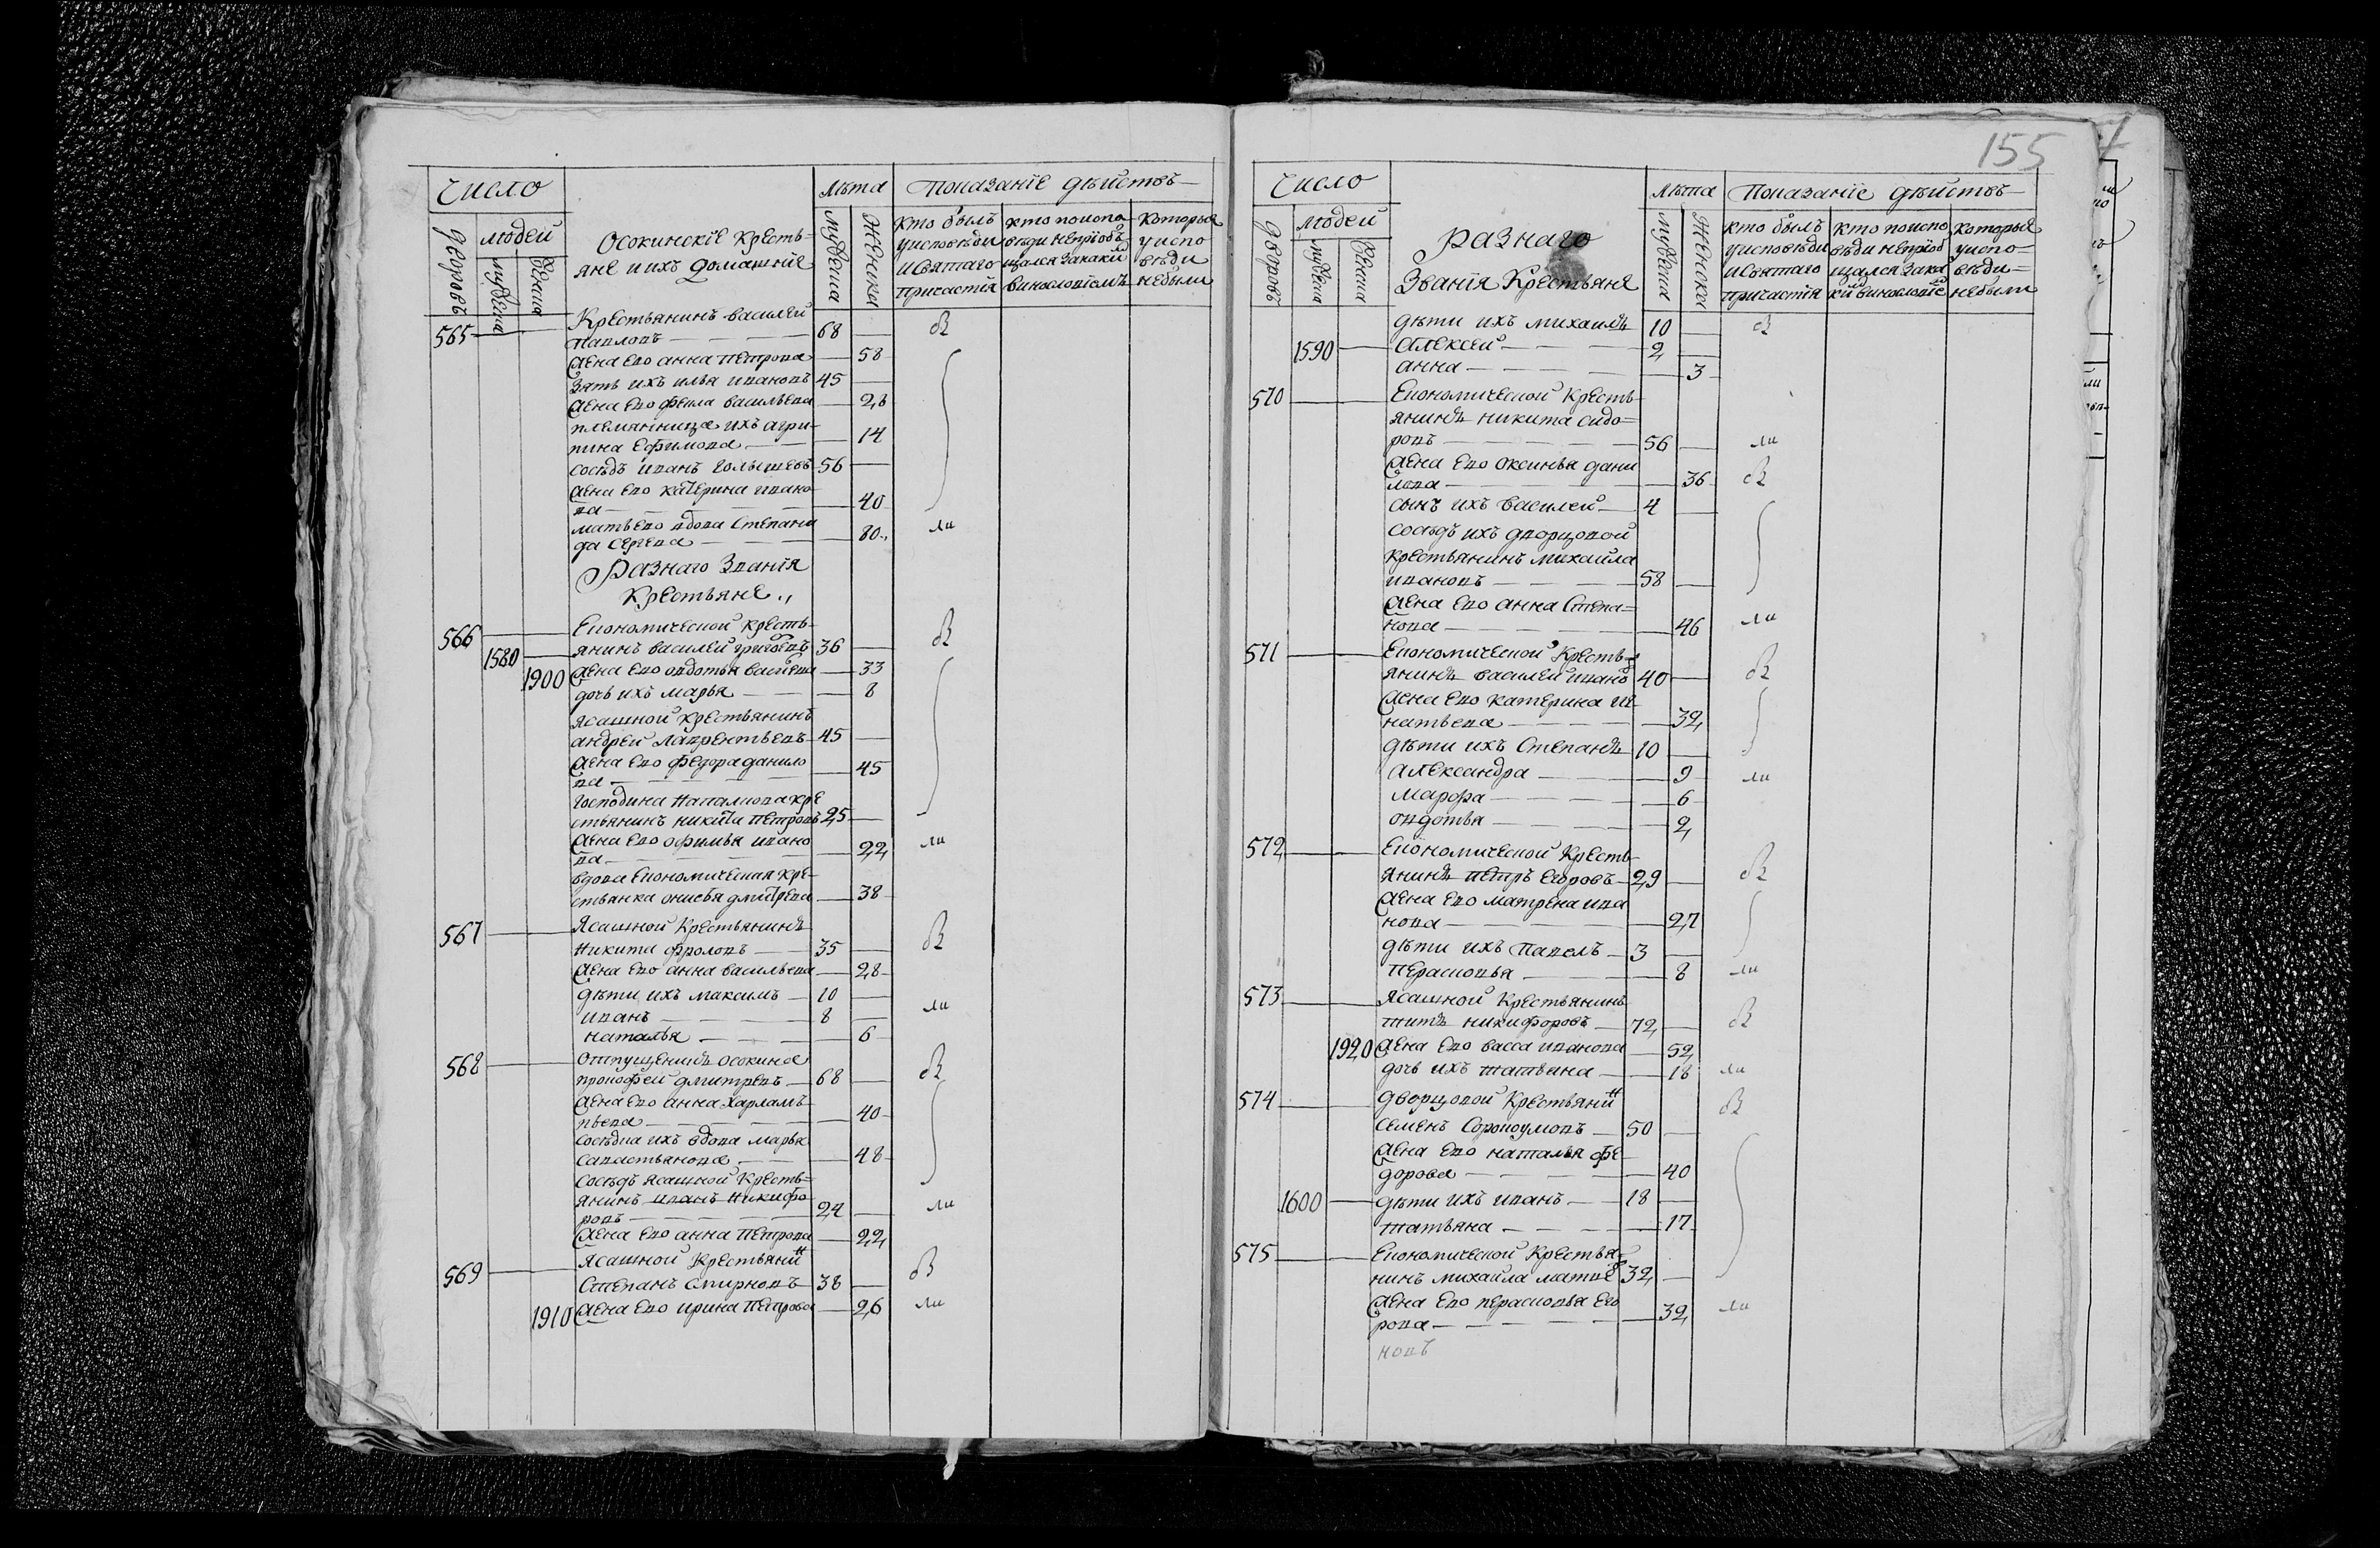 155
Число
Лѣта Показанїе дѣйствъ
дворовъ
людей
мужеска
женска
Осокинскїе Кресть=
яне и ихъ домашнїе
мужеска
женска
кто былъ
у исповѣди
и святаго
причастїя
кто по испо
вѣди не прїоб
щался за каки
винословїемъ
которые
у испо
вѣди
не были
565 Крестьянинъ Василей
Павловъ — 68 — в
жена ево Анна Петрова — 58
зять ихъ Илья Ивановъ 45 —
жена ево Фекла Васильева — 28
племянница ихъ Агри-
пина Ефимова — 14
сосѣдъ Иванъ Голышевъ 56 —
жена ево Катерина Ивано
ва — 40
мать ево вдова Степани
да Сергева — 80 ли
Разнаго Званїя
Крестьяне
566 Економической кресть-
1580 янинъ Василей Григоревъ 36 — в
1900 жена ево Овдотья Василева — 33
дочь ихъ Марья — 8
Ясашной крестьянинъ
Андрей Лаврентьевъ 45 —
жена ево Федора Данило
ва — 45
Господина крe
стьянинъ Никита Петровъ 25 —
жена ево Офимья Ивано
ва — 22 ли
вдова Економическая кре-
стьянка Онисья Дмитрева — 38
567 Ясашной Крестьянинъ
Никита Фроловъ — 35 — в
жена ево Анна Васильева — 28
дѣти ихъ Максимъ — 10 — ли
Иванъ — 8 —
Наталья — 6
568 Отпущенникъ Осокина
Прокофей Дмитревъ — 68 — в
жена ево Анна Харламъ-
пьева — 40
сосѣдка ихъ вдова Марья
Савастьянова — 48
сосѣдъ ясашной Кресть=
янинъ Иванъ Никифо
ровъ — 24 — ли
жена ево Анна Петрова — 22
569 Ясашной Крестьянин
Степанъ Смирновъ 38 — в
1910 жена ево Ирина Петрова — 26 ли
Число
Лѣта Показанїе дѣйствъ
дворовъ
людей
мужеска
женска
Разнаго
Званїя Крестьяне
мужеска
женска
кто былъ
у исповѣди
и святаго
причастїя
кто по испо
вѣди не прїоб
щался за ка
кимъ винословїе
которые
у испо=
вѣди=
не были
дѣти ихъ Михаилъ 10 — в
1590 Алексей — 2 —
Анна — 3
570 Економической Кресть-
янинъ Никита Сидо=
ровъ — 56 — ли
жена ево Оксинья Дани
лова — 36 в
сынъ ихъ Василей — 4 —
сосѣдъ ихъ дворцовой
крестьянинъ Михайла
Ивановъ — 58 —
жена ево Анна Степа=
нова — 46 ли
571 Економической Кресть-
янинъ Василей Иванов 40 — в
жена ево Катерина Иг-
натьева — 32
дѣти ихъ Степанъ 10 —
Александра — 9 ли
Марфа — 6
Овдотья — 2
572 Економической Кресть-
янинъ Петръ Егоровъ 29 — в
жена ево Матрена Ива
нова — 27
дѣти ихъ Павелъ — 3 —
Перасковья — 8 ли
573 Ясашной Крестьянинъ
Титъ Никифоровъ — 72 — в
1920 жена ево Васса Иванова — 52
дочь ихъ Татьяна — 18 ли
574 Дворцовой Крестьянин
Семенъ Сороноумовъ — 50 — в
жена ево Наталья Фе
дорова — 40
1600 дѣти ихъ Иванъ — 18 —
Татьяна — 17
575 Економической Крестья-
нинъ Михайла Матве 32 —
жена ево Перасковья Его
рова — 32 ли
новъ